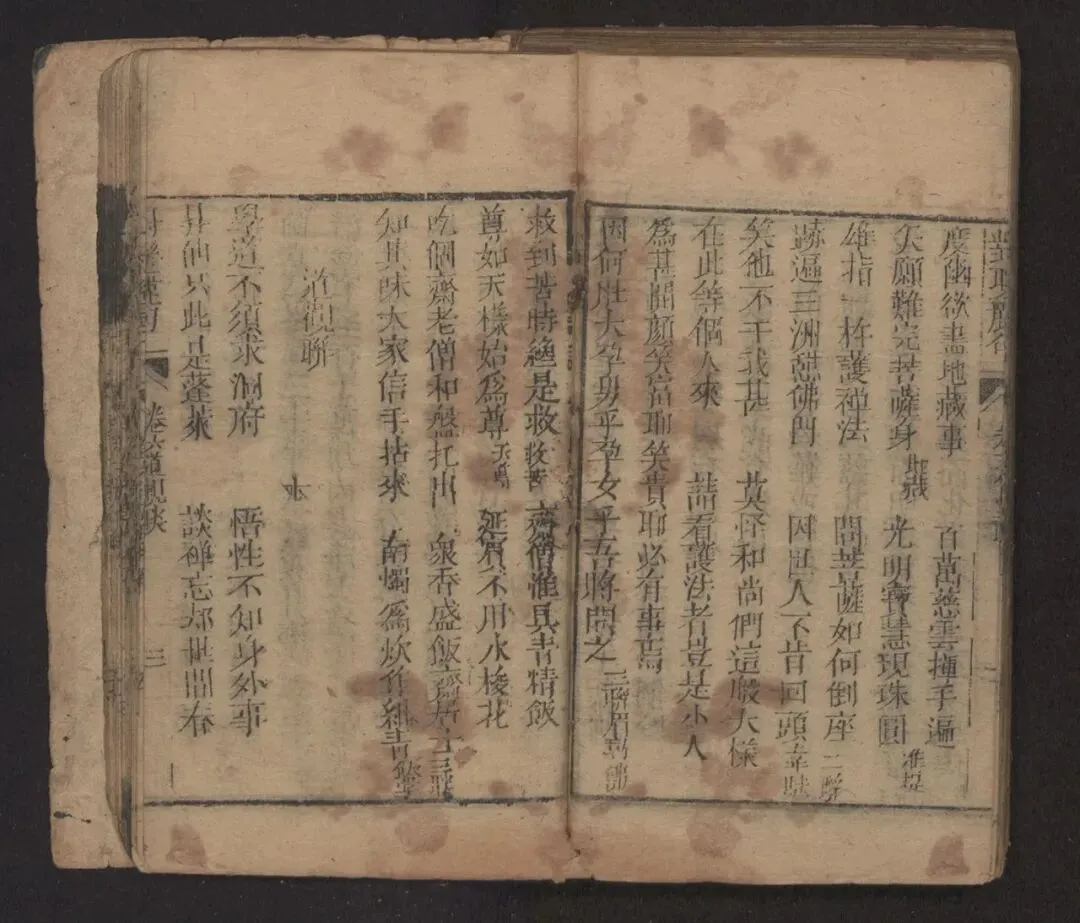 度幽欲盡地藏事　百萬慈雲揮手遍
矢願難完菩薩身地藏　光明寶慧現珠圓准提
雄指一杵護禪法　問菩薩如何倒座二聯
跡遍三洲惡佛門　因世人不肯回頭韋䭾
矣他不干我甚　莫怪和尚們這般大樣
在此等個人來　請看護法者豈是小人
為甚開顏笑富耶笑貴耶必有事焉
因何肚大孕男乎孕女乎吾將問之三聯
救到苦時纔是救救苦　齋僧惟具青精飯
尊如天樣始為尊天尊　延賓不用水梭花
吃個齋老僧和盤托出　衆香盛飯齋
知其味大家信手拈來　南燭為炊作
道觀聯
學道不須求洞府　悟性不知身外事
昇仙只此是蓬萊　談禪忘却世間春
卷 道觀聯　三